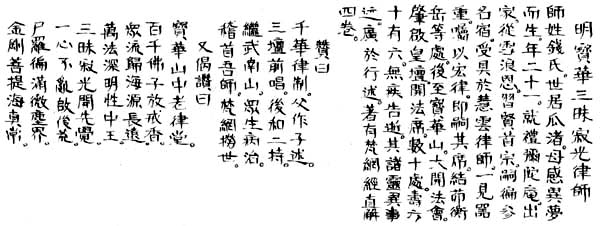 明寶華三昧寂光律師
師姓錢氏。世居瓜渚。母感異夢
而生。年二十一。就禮彌陀庵出
家。從雪浪恩。習賢首宗。嗣徧參
名宿。受具於慧雲律師。一見器
重。囑以宏律。即嗣其席。結茆衡
岳等處。後至寶華山。大開法會。
肇啟皇壇。開法席數十處。壽六
十有六。無疾告逝。其諸靈異事
迹。廣於行述。著有梵網經直解
四卷。
贊曰
千華律制。父作子述。
三壇前唱。後和二持。
繼武南山。眾生病治。
稽首吾師。梵網撈世。
又偈讚曰
寶華山中老律堂。
百千佛子放戒香。
眾流歸海源長遠。
萬法深明性中王。
三昧寂光開先覺。
一心不亂啟後荒。
尸羅徧滿微塵界。
金剛菩提海真常。